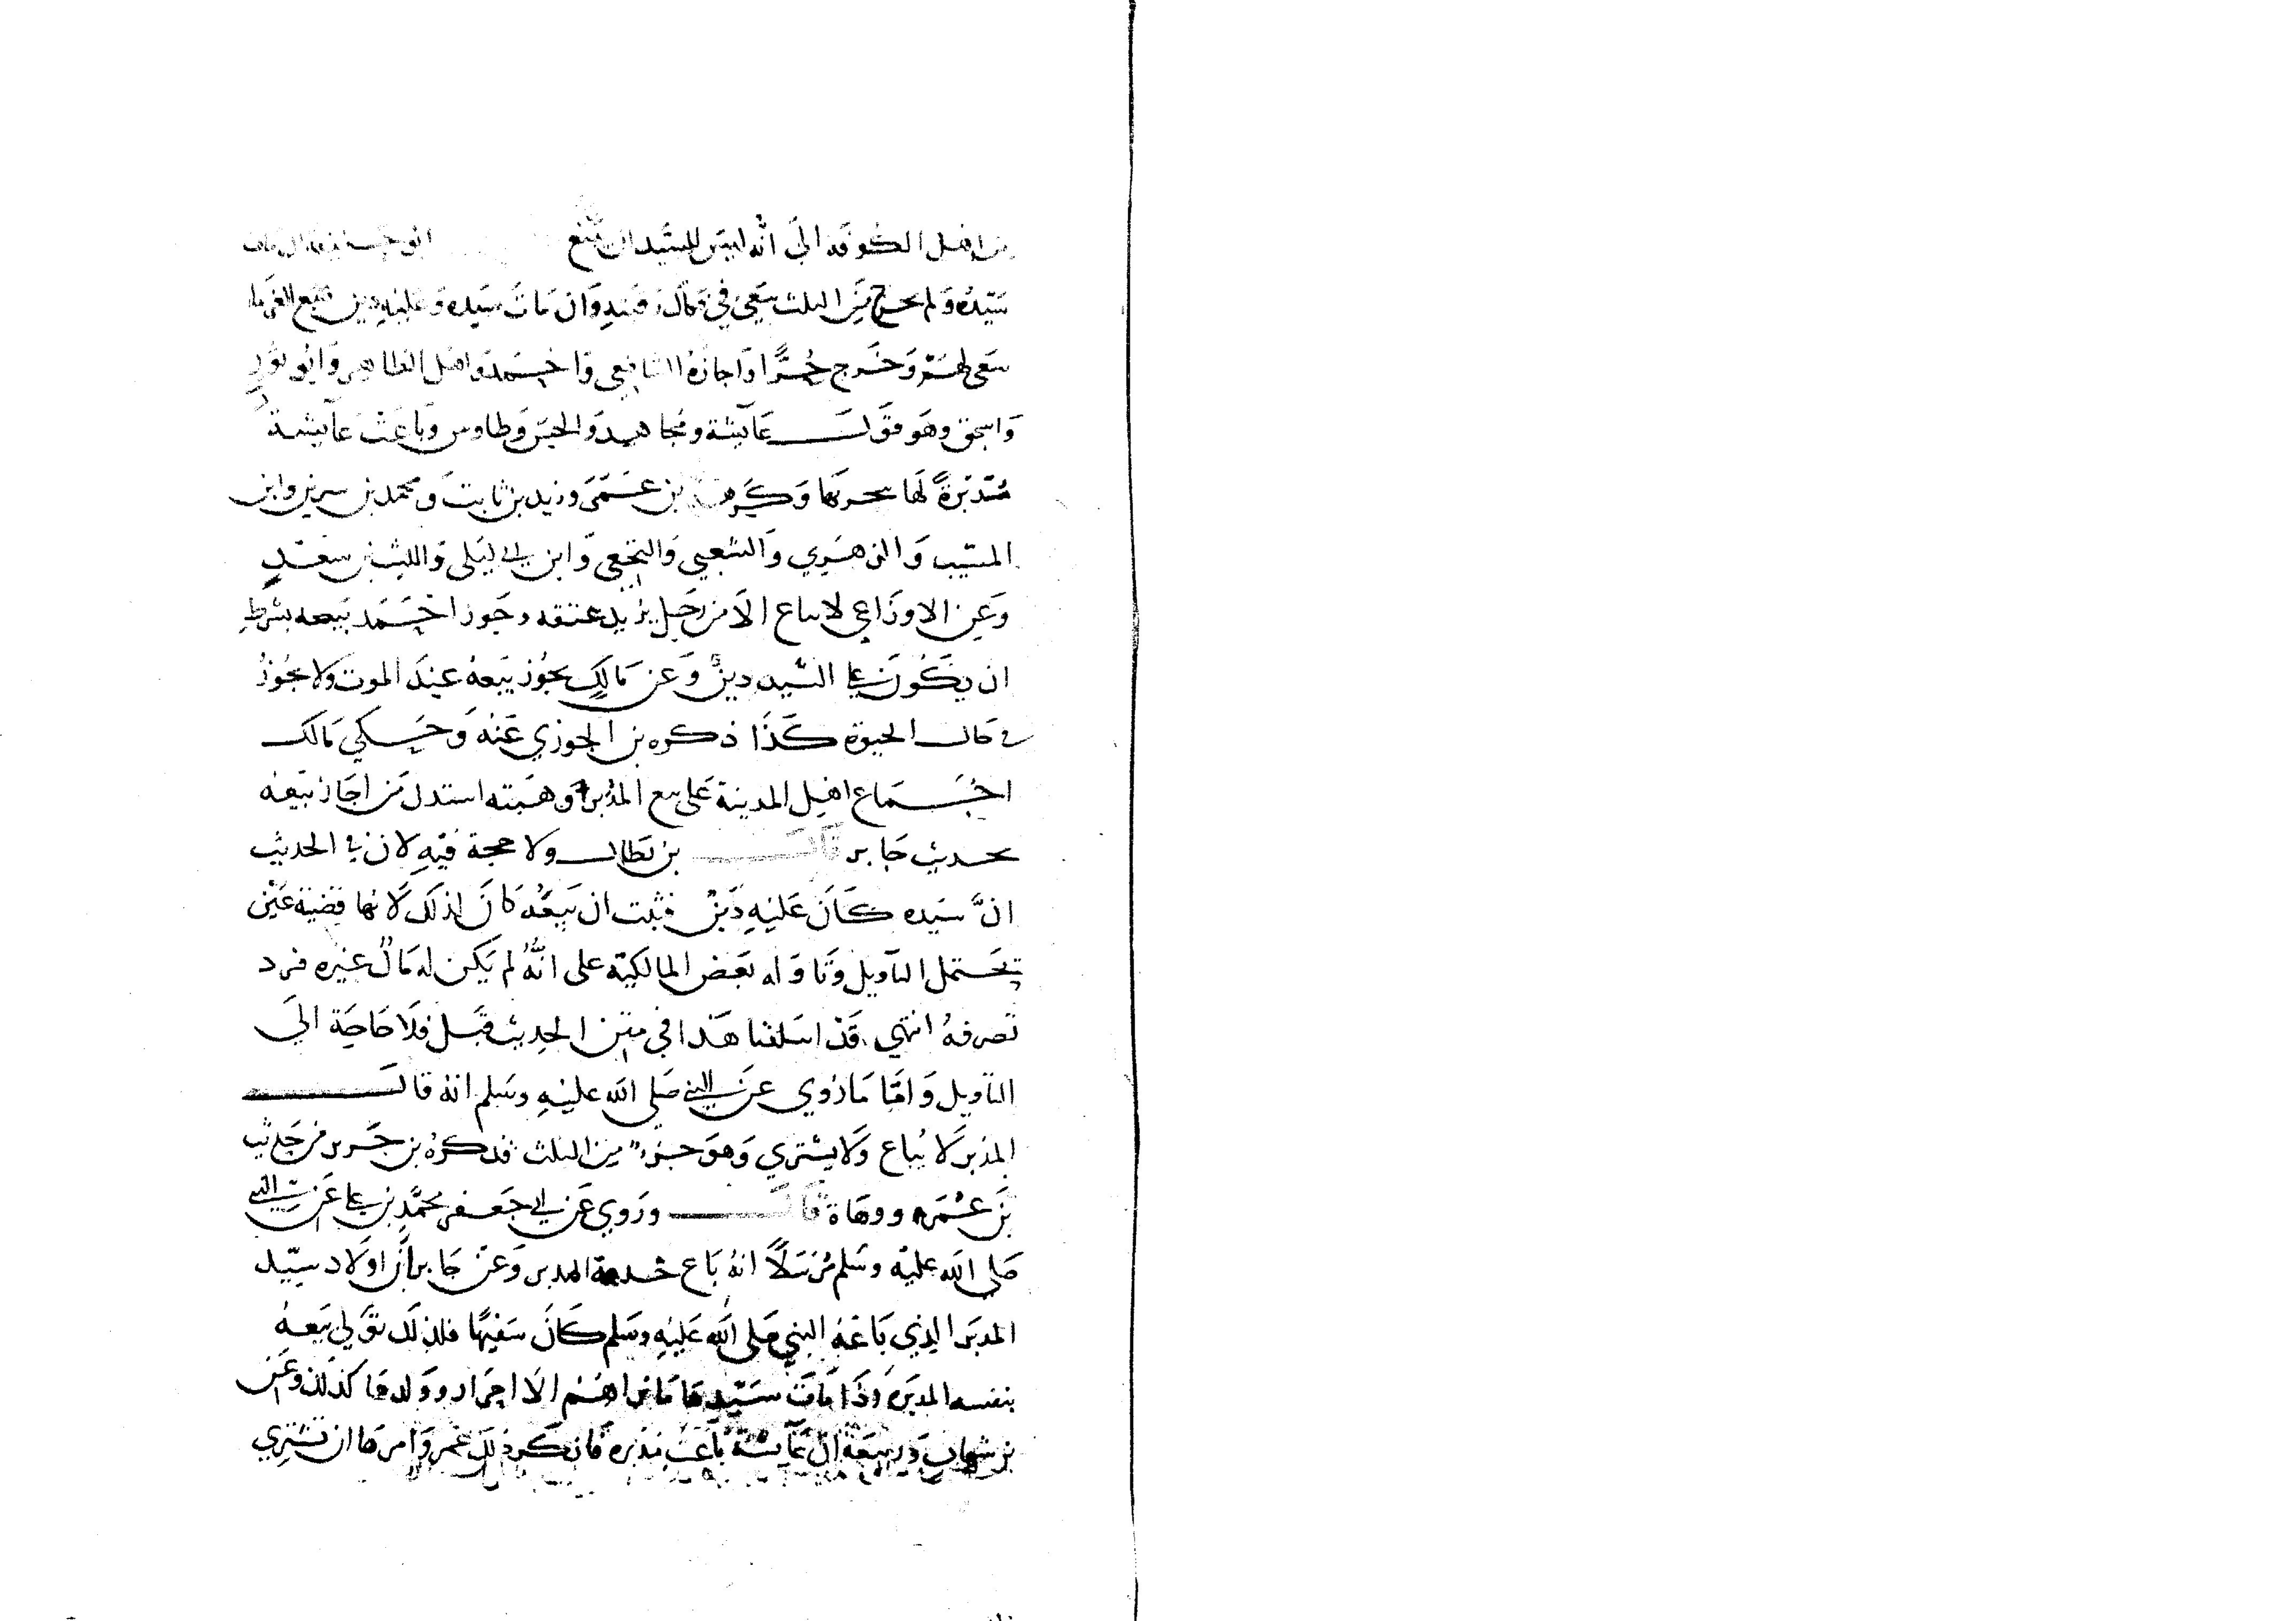 من اهل الكوفه الي انه ليس للسيد ان يبيع ابو حنيفه ان مات
سيده ولم يخرج من الثلث يسعي في وان مات سيده وعليه دين بيع للغرماء
سعى لهم وخرج حُرًّا واجازه الشافعي واحمد واهل الظاهر وابو ثورٍ
واسحق وهو قول عائشة ومجاهد والحسن وطاوس وباعت عائشة
مُدَبَّرةً لها سحرتها وكرهه بن عمر وزيد بن ثابت ومحمد بن سيرين وابن
المسيب والزهري والشعبي والنخعي وابن ابي ليلى والليث بن سعدٍ
وعن الاوزاعي لا يباع الا من رجل يريد عتقه وجوز احمد بيعه بشرط
ان يكون على السيد دينٌ وعن مالكٍ يجوز بيعه عند الموت ولا يجوز
في حال الحيوة كذا ذكره بن الجوزي عنه وحكي مالك
اجماع اهل المدينة على بيع المدبر او هبته استدل من اجاز بيعه
بحديث جابر قال بن بطال ولا حجة فيه لان في الحديث
انَّ سيده كان عليه دين فثبت ان بيعه كان لذلك لانها قضية عين
تحتمل التأويل وتأوله بعض المالكية على انه لم يكن له مالٌ غيره فرد
تصرفه انتهي قد اسلفنا هذا في متن الحديث قبل فلا حاجة الي
التاويل وامّا ما روي عن النبي صلي الله عليه وسلم انه قال
المدبر لا يُباع ولا يشتري وهو حر من الثلث فذكره بن جرير من حديث
بن عمر ووهاه قال وروي عن ابي جعفر محمدِ بن علي عن النبي
صلي الله عليه وسلم مُرسلاً انه باع خدمة المدبر وعن جابر أن اولاد سيد
المدبر الذي باعه النبي صلي الله عليه وسلم كان سفيهًا فلذلك تولي بيعه
بنفسه المدبره اذا مات سيدها ما نراهم الا احرار وولدها كذلك وعن
بن شهاب وربيعة ان عايشة باعت مدبره فانكر ذلك عمر وامرها ان تشتري